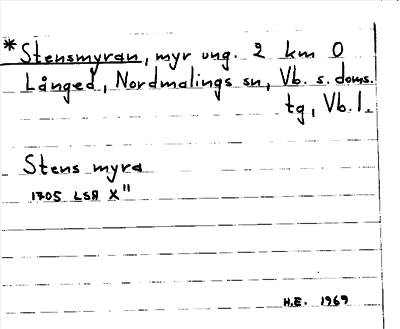 *Stensmyran, myr ung. 2 km O
Långed, Nordmalings sn, Vb. s. doms.
tg, Vb. l.
Stens myra
1705 LSA X"
H.E. 1969